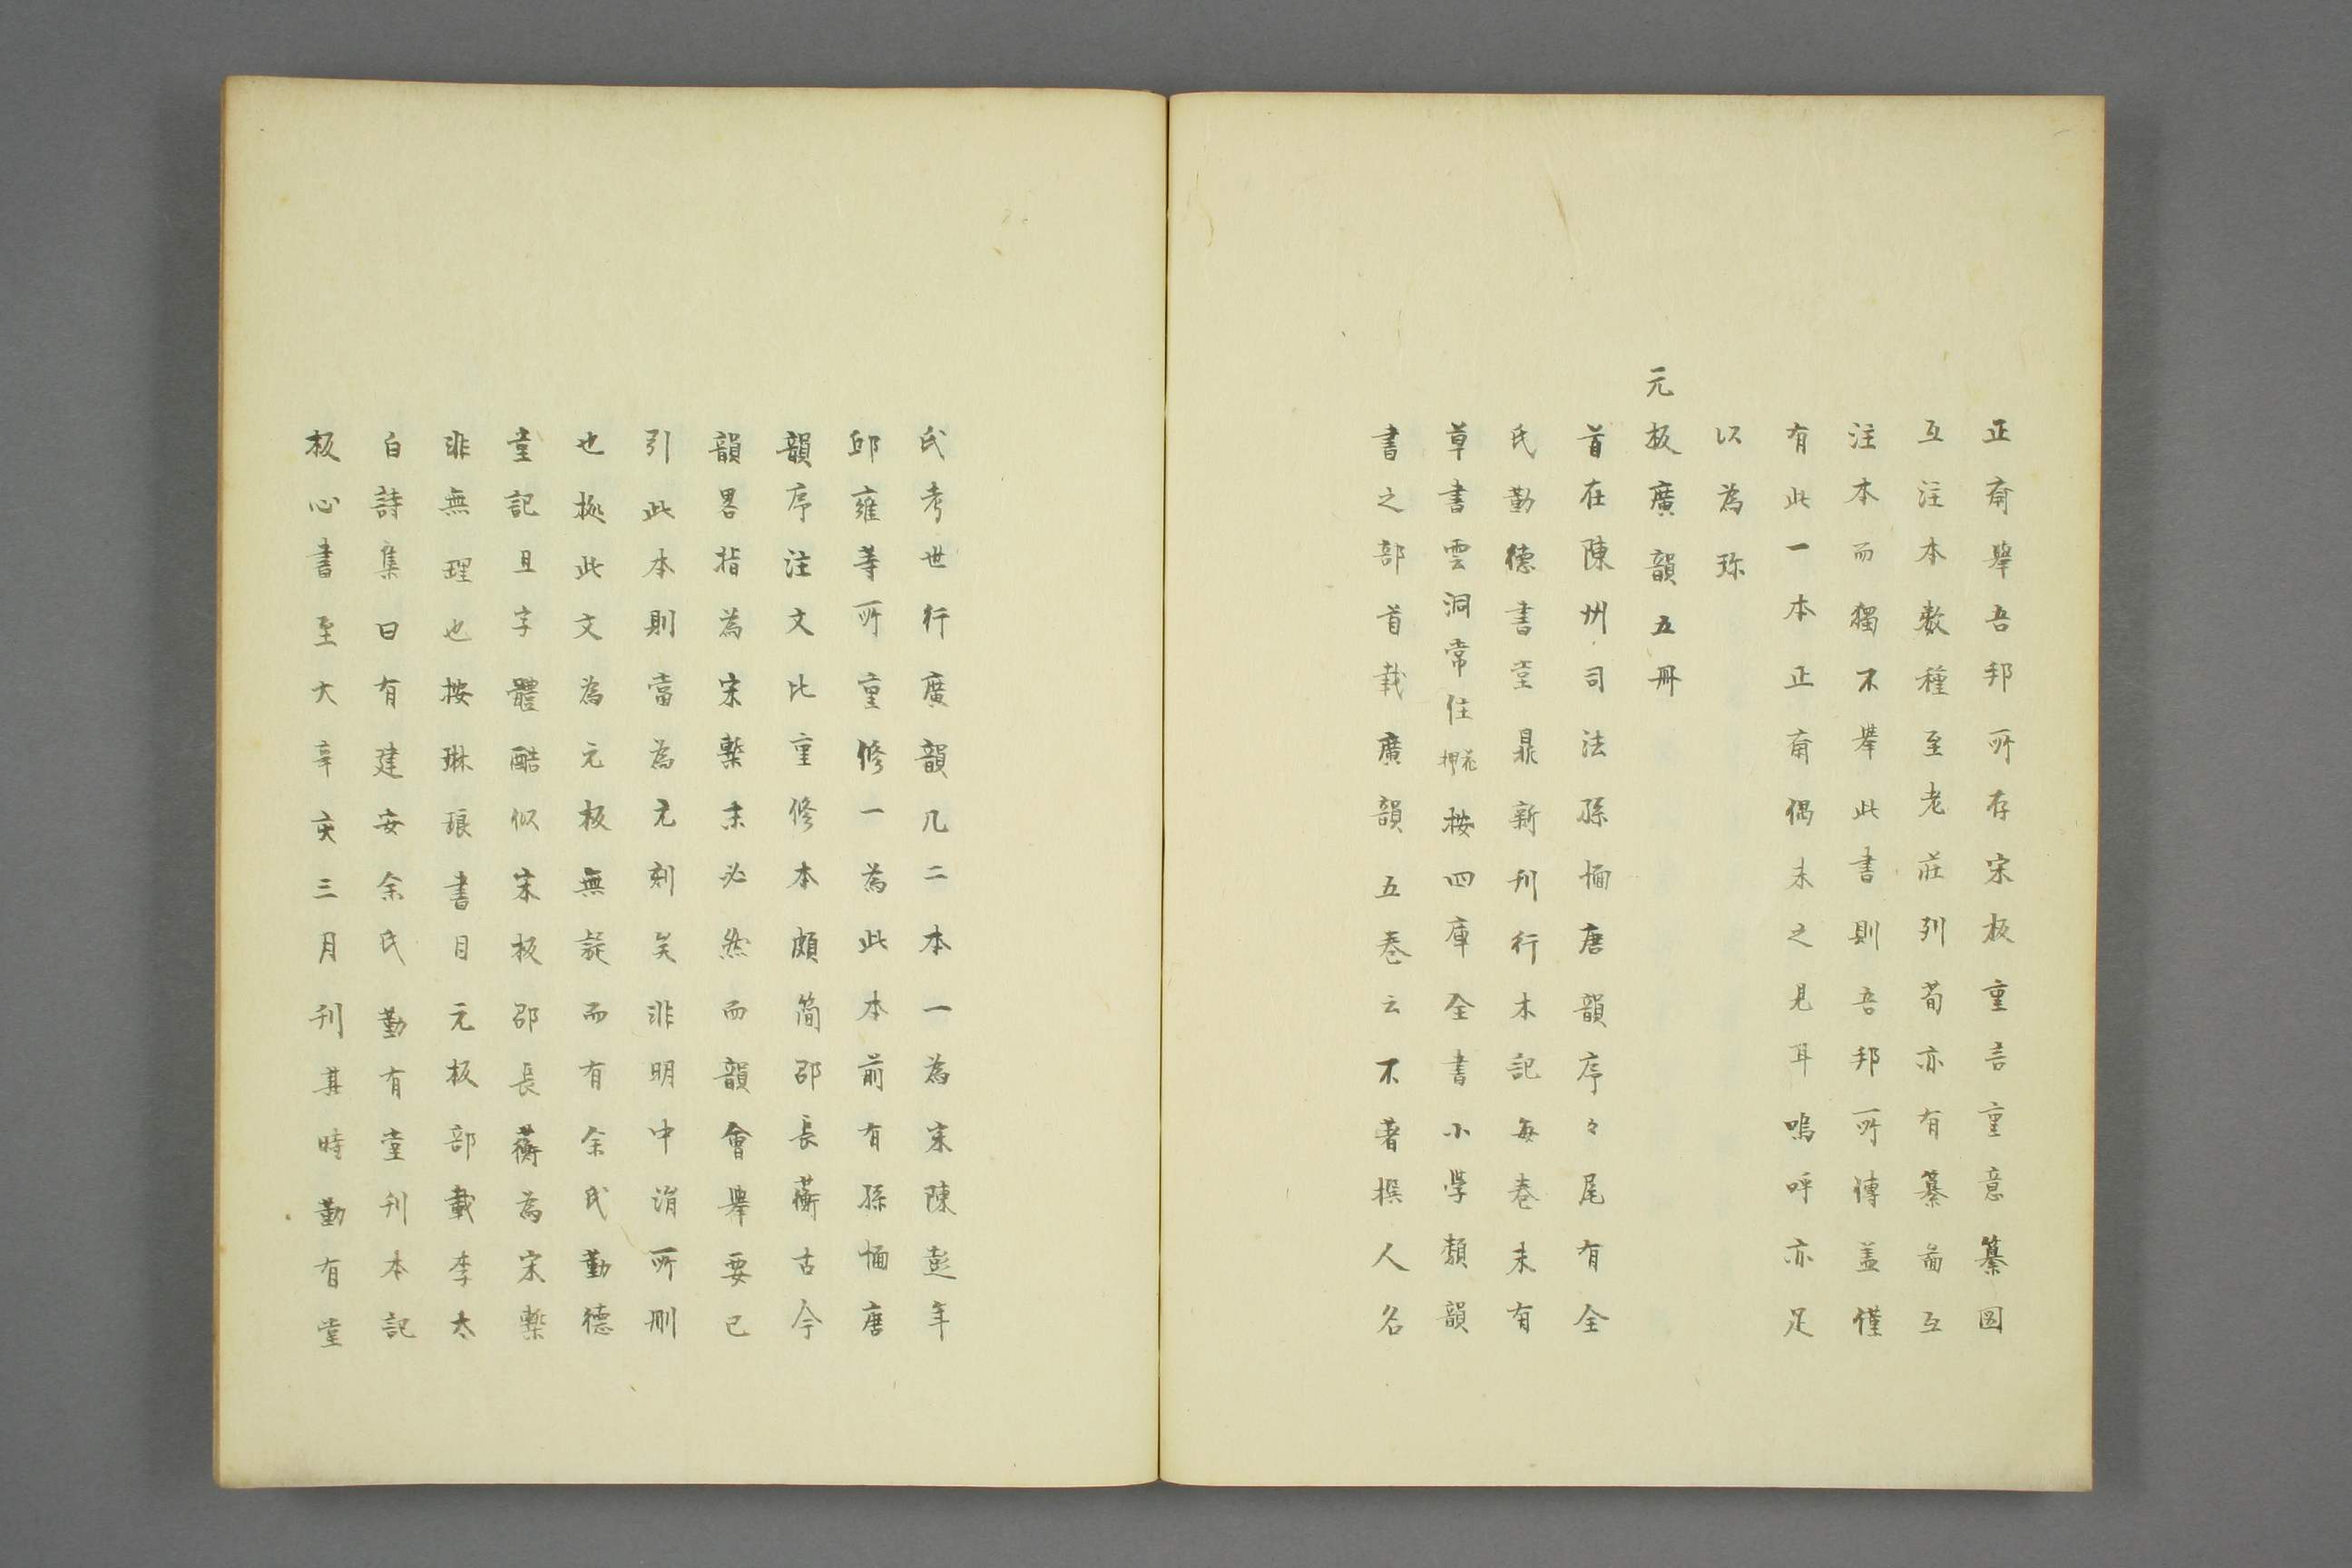 正齋舉吾邦所存宋板重言重意纂図
互注本數種至老莊列荀亦有纂啚互
注本而獨不舉此書則吾邦所傳盖僅
有此一本正齋偶未之見耳嗚呼亦足
以為珎
元板廣韻五冊
首在陳州司法孫愐唐韻序々尾有余
氏勤德書堂鼎新刊行木記每卷末有
草書雲洞常住花押按四庫全書小學類韻
書之部首載廣韻五卷云不著撰人名
氏考世行廣韻凡二本一為宋陳彭年
邱雍等所重修一為此本前有孫愐唐
韻序注文比重修本頗簡邵長蘅古今
韻畧指為宋槧未必然而韻會舉要已
引此本則當為元刻矣非明中涓所刪
也极此文為元板無疑而有余氏勤德
堂記且字體酷似宋板邵長蘅為宋槧
非無理也按琳琅書目元板部載李太
白詩集曰有建安余氏勤有堂刊本記
板心書至大辛亥三月刊其時勤有堂